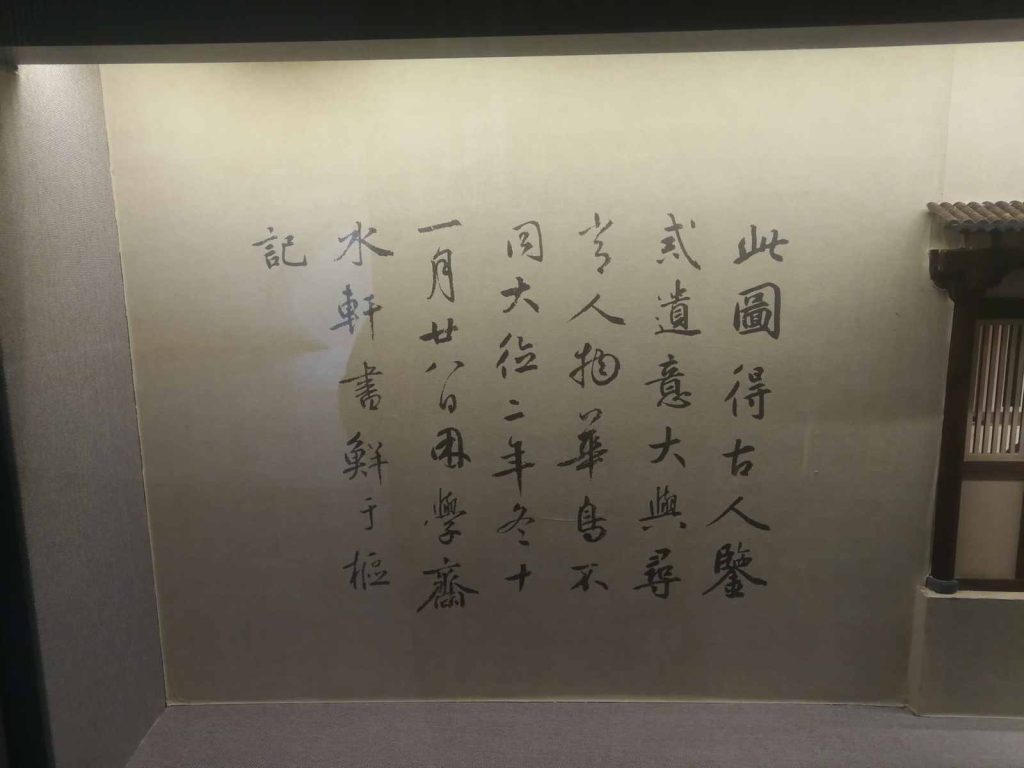 此圖得古人鑒
貳遺意大與尋
常人物華鳥不
同大德二年冬十
一月廿八日困學齋
水軒書鮮于樞
記